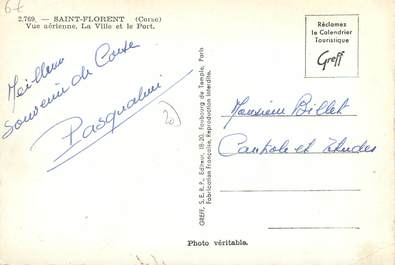 6f
2.769. — SAINT-FLORENT (Corse)
Vue aérienne. La Ville et le Port.
Meilleur
Souvenir de Corse
Pasqualini
20
Réclamez
le Calendrier
Touristique
Greff
Monsieur Billet
Contrôle et Etudes
GREFF, S.E.R.P., Editeur, 18-20, Faubourg du Temple, Paris
Fabrication Française. Reproduction Interdite.
Photo véritable.